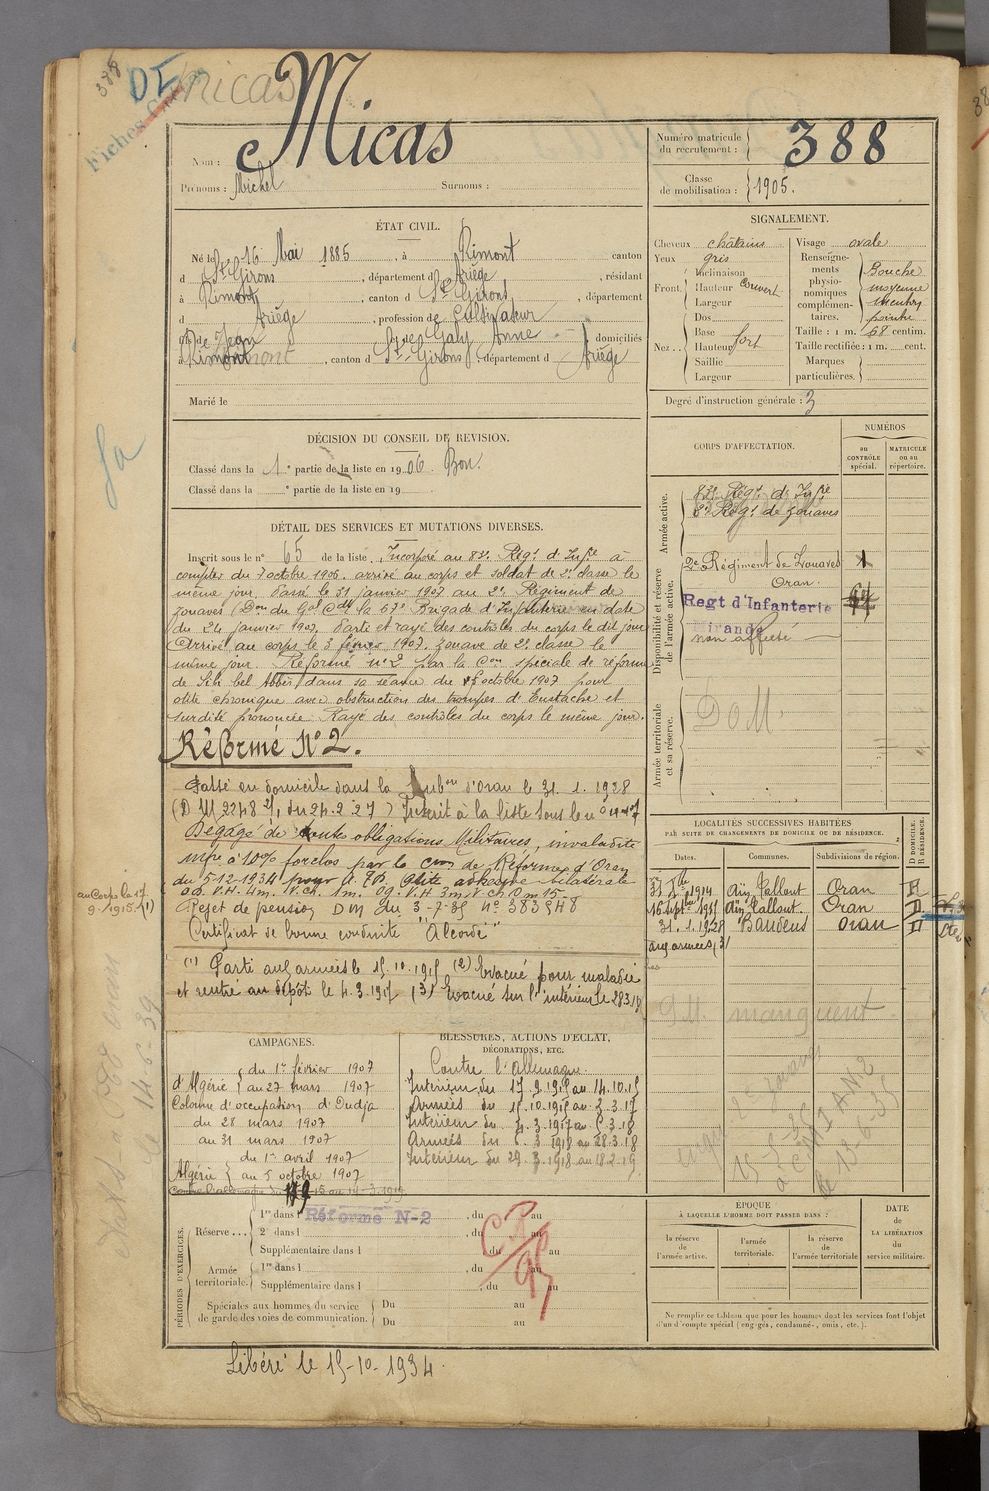 388
DI Micas
Fiches
Micas
Nom :
Prénoms : Michel Surnoms :
Numéro matricule du recrutement : 388
Classe de mobilisation : 1905.
ÉTAT CIVIL.
Né le 16 Mai 1885, à Rimont canton
d St Girons, département d Ariège, résidant
à Rimont, canton d St Girons, département
d Ariège, profession de Cultivateur
fils de Jean et de Galy Anne domiciliés
à Rimont, canton d St Girons, département d Ariège
Marié le
SIGNALEMENT.
Cheveux châtains
Yeux gris
Front. Inclinaison
Hauteur couvert
Largeur
Nez .. Dos
Base
Hauteur fort
Saillie
Largeur
Visage ovale
Renseigne-
ments
physio-
nomiques
complémen-
taires.
Bouche
moyenne
menton
pointu
Taille : 1 m. 68 centim.
Taille rectifiée : 1 m. cent.
Marques
particulières.
Degré d'instruction générale : 3
DÉCISION DU CONSEIL DE REVISION.
Classé dans la 1e partie de la liste en 1906. Bon.
Classé dans la e partie de la liste en 19
DÉTAIL DES SERVICES ET MUTATIONS DIVERSES.
Inscrit sous le n° 65 de la liste. Incorporé au 83e Régt d'Infie à
compter du 7 octobre 1906. arrivé au corps et soldat de 2e classe le
même jour. Passé le 31 janvier 1907 au 2e Régiment de
zouaves (Don du Gal Cdt la 67e Brigade d'Infanterie en date
du 24 janvier 1907. Parti et rayé des contrôles du corps le dit jour
Arrivé au corps le 3 février 1907. zouave de 2e classe le
même jour. Réformé n° 2 par la Con spéciale de réforme
de Sidi bel Abbès dans sa séance du octobre 1907 pour
otite chronique avec obstruction des trompes d'Eustache et
surdité prononcée. Rayé des contrôles du corps le même jour.
Réformé N° 2.
Passé en domicile dans la Subon d'Oran le 31. 1. 1928
(D M 2248 du 24.2.27) Inscrit à la liste sous le n°
Dégagé de toutes obligations Militaires, invalidité
à 10% forclos par la Con de Réforme d'Oran
du 5-12-1934 pour Otite adhésive bilatérale
OD. V.H. 4m. V.ch. 1m. OG. V.H 3m. V.ch. 0m15
Rejet de pension DM du 3-7-35 n° 383548
Certificat de bonne conduite "Accordé"
(1) Parti aux armées le 15.10.1915 (2) Evacué pour maladie
et rentré au dépôt le 4.3.1917 (3) Evacué sur l'intérieur le 28.3.18
au Corps le 17.
9.1915 (1)
le 14-6-39
CORPS D'AFFECTATION.
NUMÉROS
au CONTRÔLE spécial.
MATRICULE ou au répertoire.
Armée active.
83e Régt d'Infie
2e Régt de zouaves
Disponibilité et réserve de l'armée active.
2e Régiment de Zouaves
Oran.
Regt d'Infanterie
Mirande
non affecté
Armée territoriale et sa réserve.
DOM.
LOCALITÉS SUCCESSIVES HABITÉES
PAR SUITE DE CHANGEMENTS DE DOMICILE OU DE RÉSIDENCE.
Dates. Communes. Subdivisions de région. D DOMICILE. R RÉSIDENCE.
1914 Aïn Tallout Oran R
16 Septbre 1915 Aïn Tallout. Oran D
31. 1. 1928 Baudens Oran D
aux armées (3)
manquent
CAMPAGNES.
du 1er février 1907
d'Algérie au 27 mars 1907
Colonne d'occupation d'Oudja
du 28 mars 1907
au 31 mars 1907
du 1er avril 1907
Algérie au 5 octobre 1907
BLESSURES, ACTIONS D'ÉCLAT,
DÉCORATIONS, ETC.
Contre l'Allemagne.
Intérieur du 17.9.1915 au 14.10.15
Armées du 15.10.1915 au 3.3.17
Intérieur du 4.3.1917 au 5.3.18
Armées du 6.3.1918 au 28.3.18
Intérieur du 29.3.1918 au 18.2.19
PÉRIODES D'EXERCICES.
Réserve ... 1re dans l Réformé N-2, du au
2e dans l, du au
Supplémentaire dans l du au
Armée territoriale. 1re dans l, du au
Supplémentaire dans l, du au
Spéciales aux hommes du service
de garde des voies de communication.
Du au
Du au
EPOQUE
À LAQUELLE L'HOMME DOIT PASSER DANS :
la réserve de l'armée active.
l'armée territoriale.
la réserve de l'armée territoriale
DATE de LA LIBÉRATION du service militaire.
Ne remplir ce tableau que pour les hommes dont les services font l'objet
d'un décompte spécial (engagés, condamnés, omis, etc.).
Libéré le 15-10-1934.